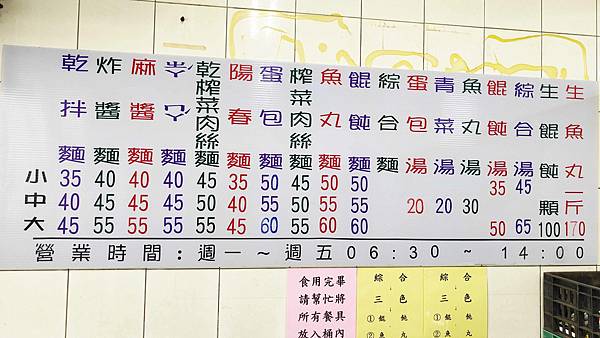 小 中 大
乾拌麵 35 40 45
炸醬麵 40 45 55
麻醬麵 40 45 55
麵 40 45 55
乾榨菜肉絲麵 45 50 55
陽春麵 35 40 45
蛋包麵 50 55 60
榨菜肉絲麵 45 50 55
魚丸麵 50 55 60
餛飩麵 50 55 60
綜合麵
蛋包湯 20
青菜湯 20
魚丸湯 30
餛飩湯 35 50
綜合湯 45 65
生餛飩顆100
生魚丸一斤170
營業時間:週一~週五06:30~14:00
食用完畢
請幫忙將
所有餐具
放入桶內
綜合
↓
三色
↓
①餛飩
②魚丸
綜合
↓
三色
↓
①餛飩
②魚丸